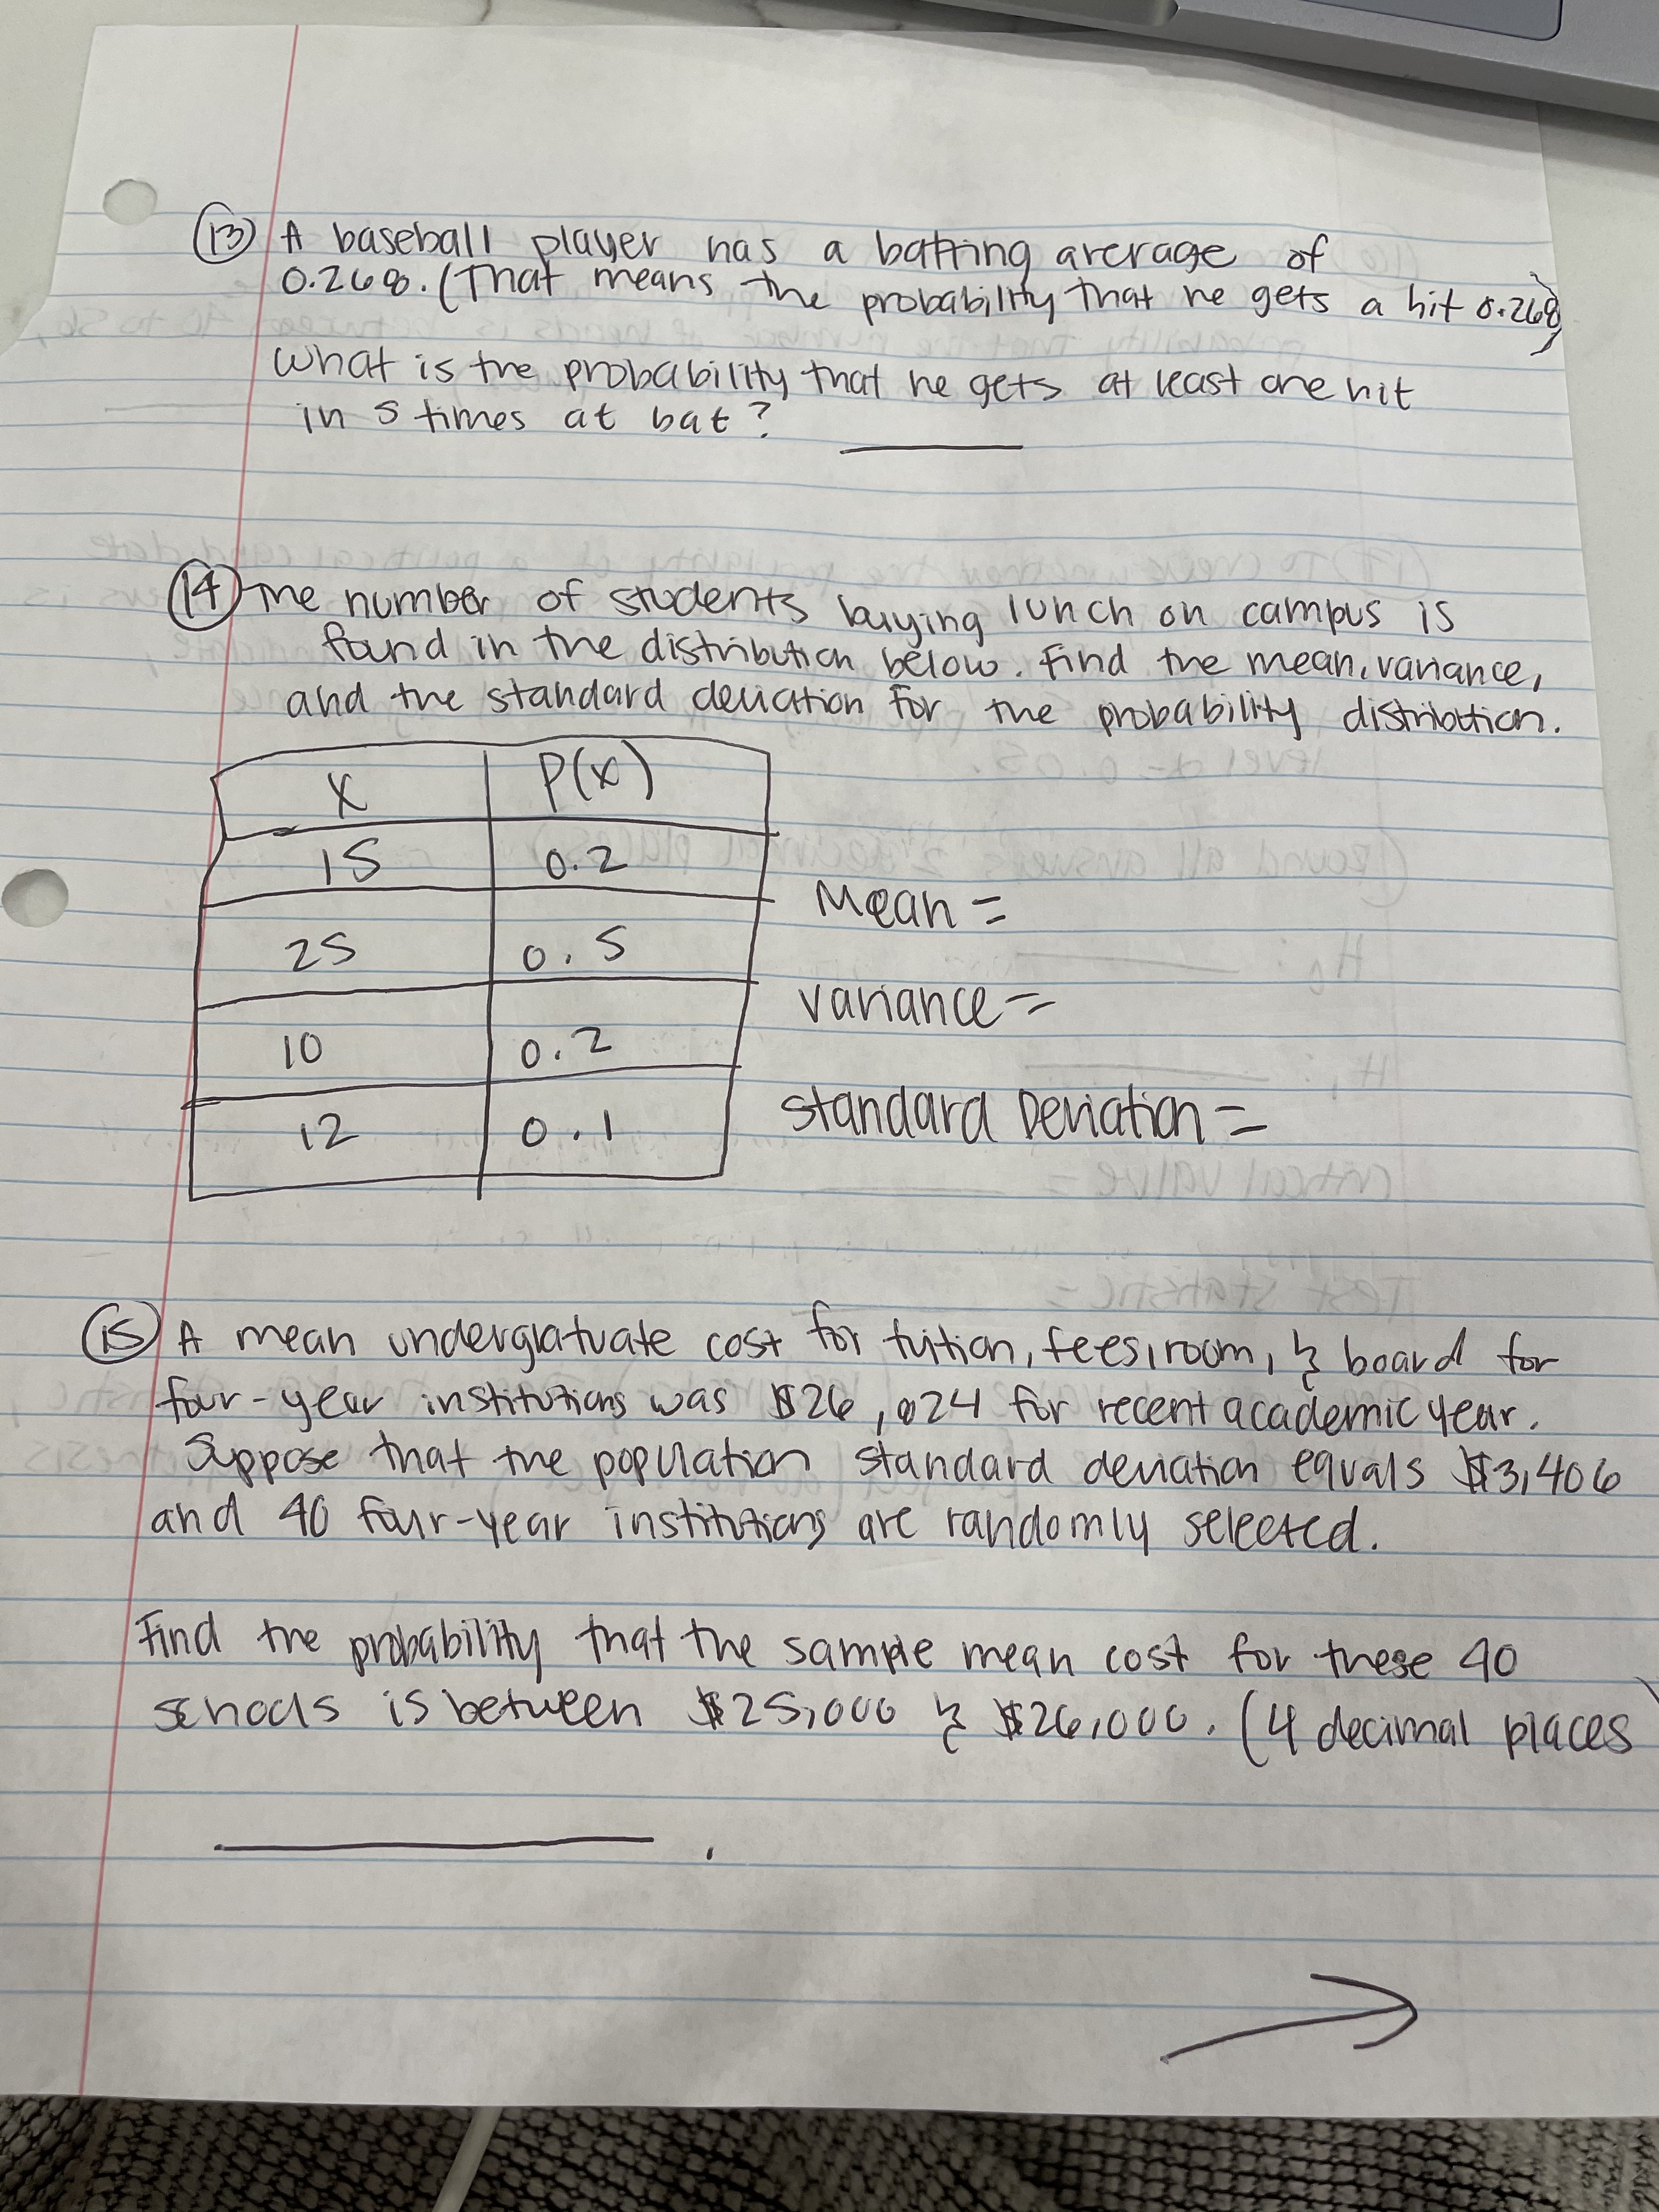 13 A baseball player has a batting average of
0.268. (That means the probability that he gets a hit 0.268)
What is the probability that he gets at least one hit
in 5 times at bat?
14 The number of students buying lunch on campus is
found in the distribution below. Find the mean, variance,
and the standard deviation for the probability distribution.
X P(x)
15 0.2
25 0.5
10 0.2
12 0.1
Mean =
Variance =
Standard Deviation =
15 A mean undergratuate cost for tuition, fees, room, & board for
four-year institutions was $26,024 for recent academic year.
Suppose that the population standard deviation equals $3,406
and 40 four-year institutions are randomly selected.
Find the probability that the sample mean cost for these 40
schools is between $25,000 & $26,000. (4 decimal places)